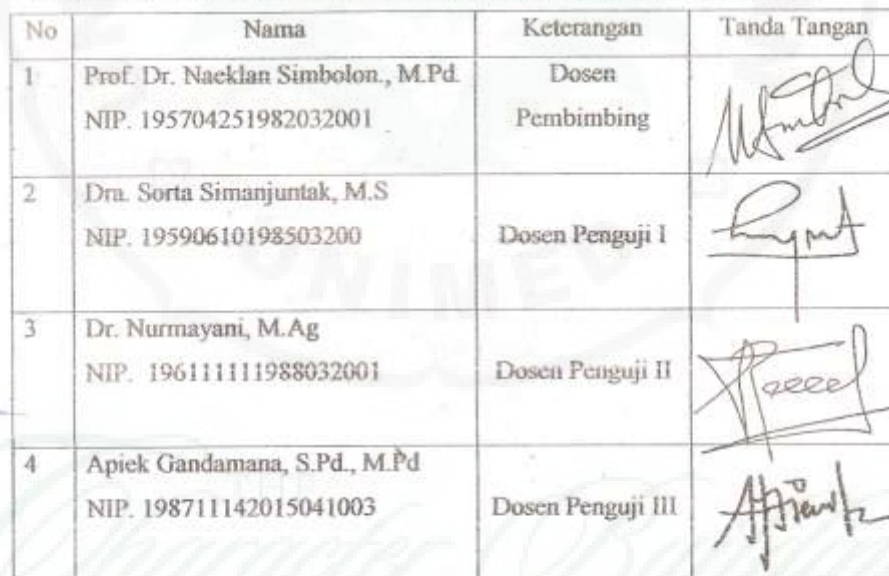 No Nama Keterangan Tanda Tangan
1 Prof. Dr. Naeklan Simbolon., M.Pd. Dosen
NIP. 195704251982032001 Pembimbing
2 Dra. Sorta Simanjuntak, M.S
NIP. 19590610198503200 Dosen Penguji I
3 Dr. Nurmayani, M.Ag
NIP. 196111111988032001 Dosen Penguji II
4 Apiek Gandamana, S.Pd., M.Pd
NIP. 198711142015041003 Dosen Penguji III
UNIMED